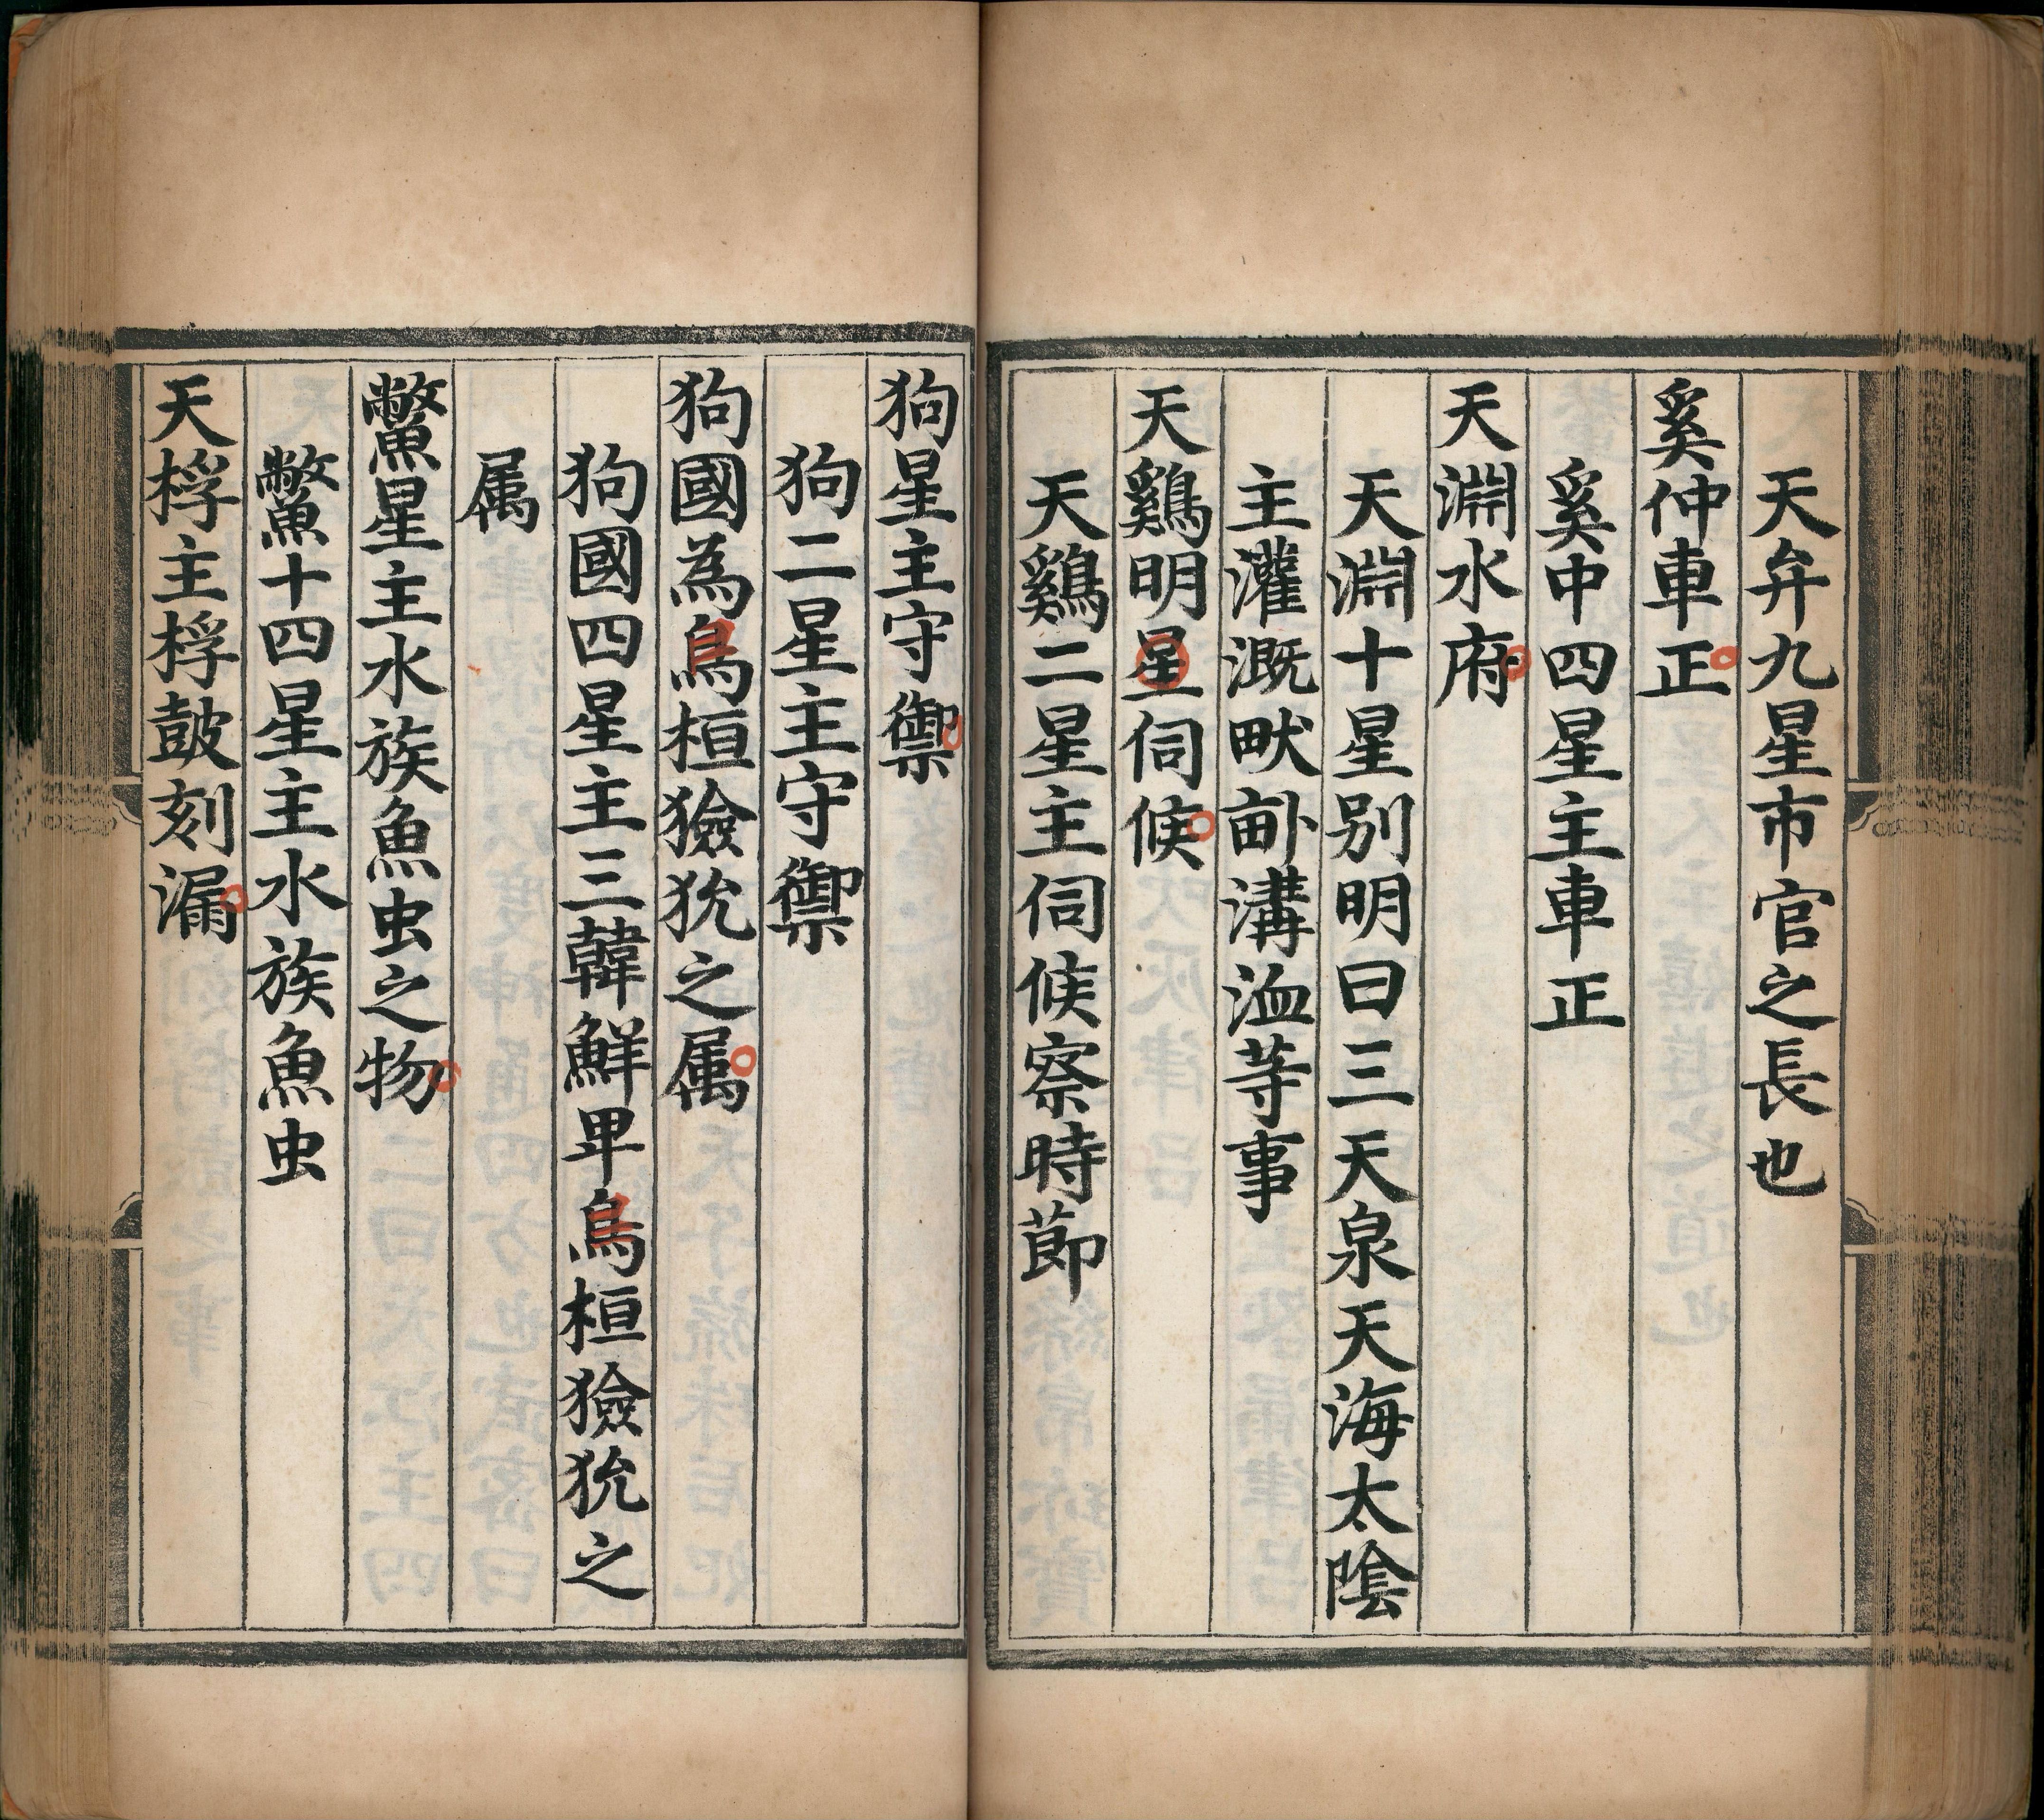 天弁九星市官之長也
奚仲車正
奚中四星主車正
天淵水府
天淵十星别明曰三天泉天海太陰
主灌溉畎畝溝洫等事
天鷄明星伺候
天鷄二星主伺候察時節
狗星主守禦
狗二星主守禦
狗國為烏桓獫狁之属
狗國四星主三韓鮮卑烏桓獫狁之
属
鱉星主水族魚虫之物
鱉十四星主水族魚虫
天桴主桴鼓刻漏